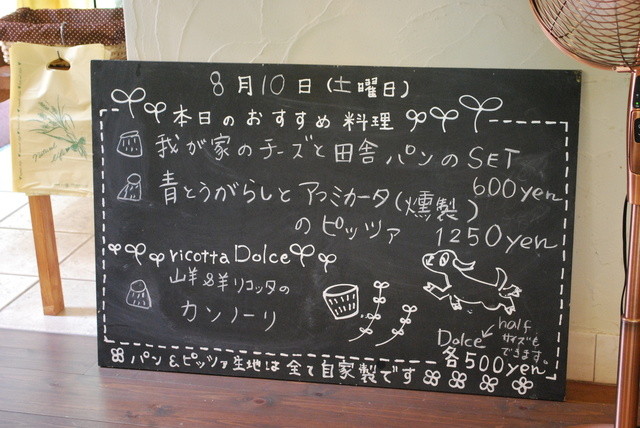 8月10日(土曜日)
本日のおすすめ料理
我が家のチーズと田舎パンのSET
600yen
青とうがらしとアフミカータ(燻製)
のピッツァ 1250yen
ricotta Dolce
山羊&羊リコッタの
カンノーリ
Dolce
half
サイズも
できます。
各500yen
パン&ピッツァ生地は全て自家製です